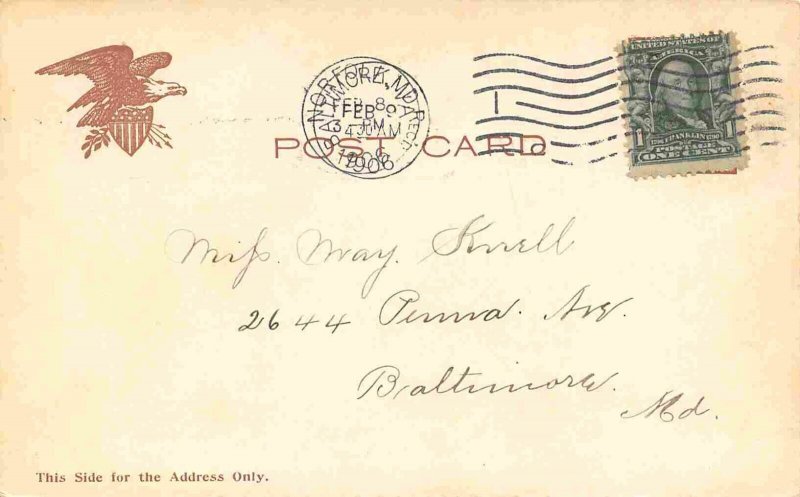 UNITED STATES OF
AMERICA
FRANKLIN
POSTAGE
ONE CENT
1 1
NORFOLK, VA
BALTIMORE, MD. REC'D
FEB 8
FEB
AM
1906
POST CARD
Miss. May. Knell
2644 Penna. Ave.
Baltimore.
Md.
This Side for the Address Only.